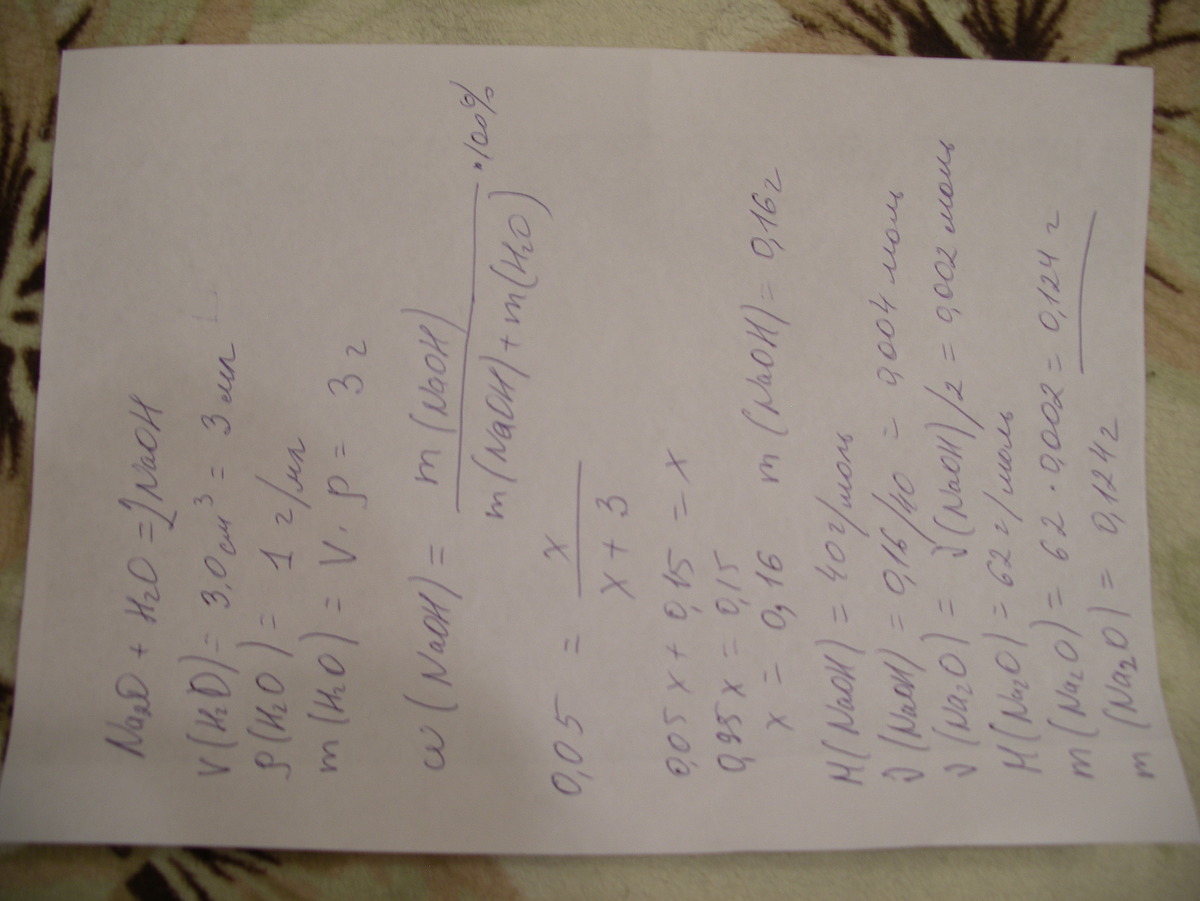 Na2O + H2O = 2NaOH
V(H2O) = 3,0 см³ = 3 мл
ρ(H2O) = 1 г/мл
m(H2O) = V · ρ = 3 г
ω(NaOH) = m(NaOH) / m(NaOH) + m(H2O) · 100%
0,05 = x / x + 3
0,05x + 0,15 = x
0,95x = 0,15
x = 0,16 m(NaOH) = 0,16 г
M(NaOH) = 40 г/моль
ν(NaOH) = 0,16/40 = 0,004 моль
ν(Na2O) = ν(NaOH)/2 = 0,002 моль
M(Na2O) = 62 г/моль
m(Na2O) = 62 · 0,002 = 0,124 г
m(Na2O) = 0,124 г